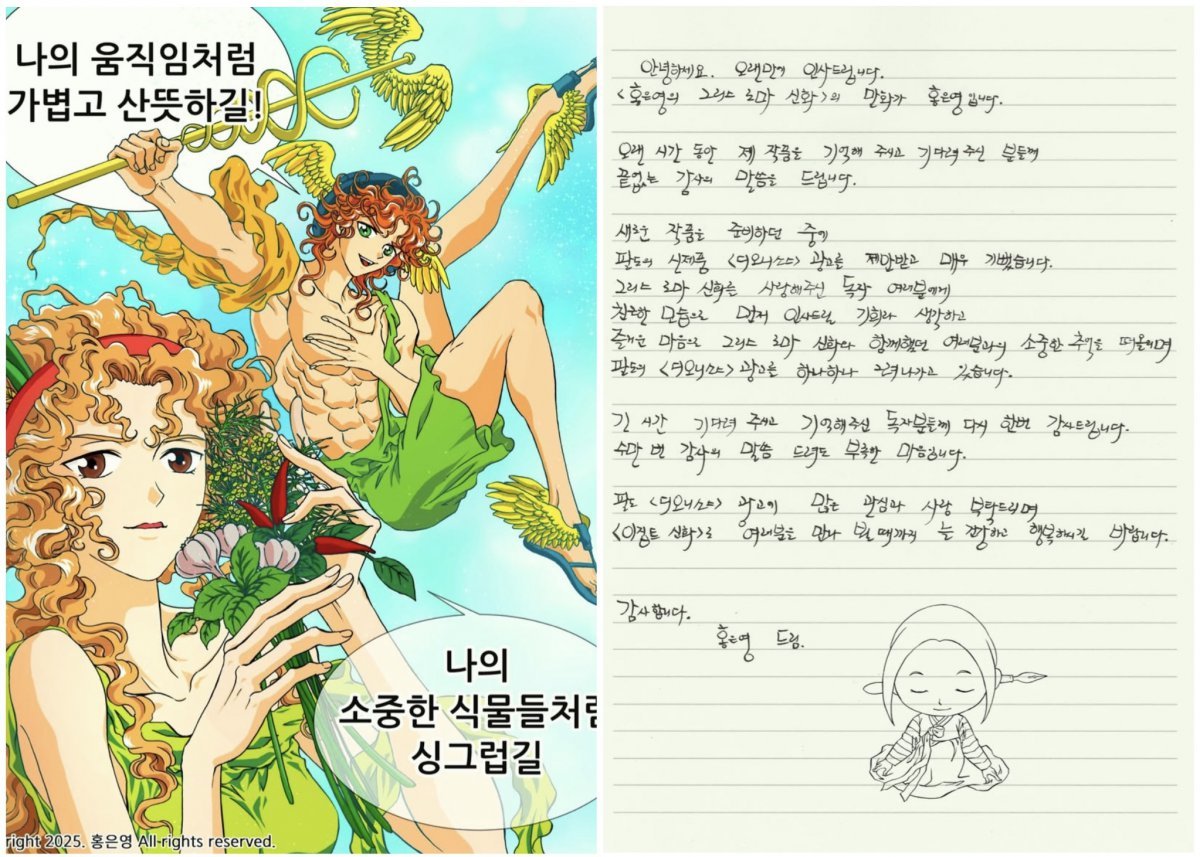 나의 움직임처럼
가볍고 산뜻하길!
나의
소중한 식물들처럼
싱그럽길
right 2025. 홍은영 All rights reserved.
안녕하세요. 오랜만에 인사드립니다.
<홍은영의 그리스 로마 신화>의 만화가 홍은영입니다.
오랜 시간 동안 제 작품을 기억해 주시고 기다려 주신 분들께
끝없는 감사의 말씀을 드립니다.
새로운 작품을 준비하던 중에
팔도의 신제품 <디오니소스> 광고를 제안받고 매우 기뻤습니다.
그리스 로마 신화를 사랑해주신 독자 여러분에게
친근한 모습으로 먼저 인사드릴 기회라 생각하고
즐거운 마음으로 그리스 로마 신화와 함께했던 여러분과의 소중한 추억을 떠올리며
팔도의 <디오니소스> 광고를 하나하나 그려나가고 있습니다.
긴 시간 기다려 주시고 기억해주신 독자분들께 다시 한번 감사드립니다.
수만 번 감사의 말씀 드려도 부족한 마음입니다.
팔도 <디오니소스> 광고에 많은 관심과 사랑 부탁드리며
<이집트 신화>로 여러분을 만나 뵐 때까지 늘 건강하고 행복하시길 바랍니다.
감사합니다.
홍은영 드림.